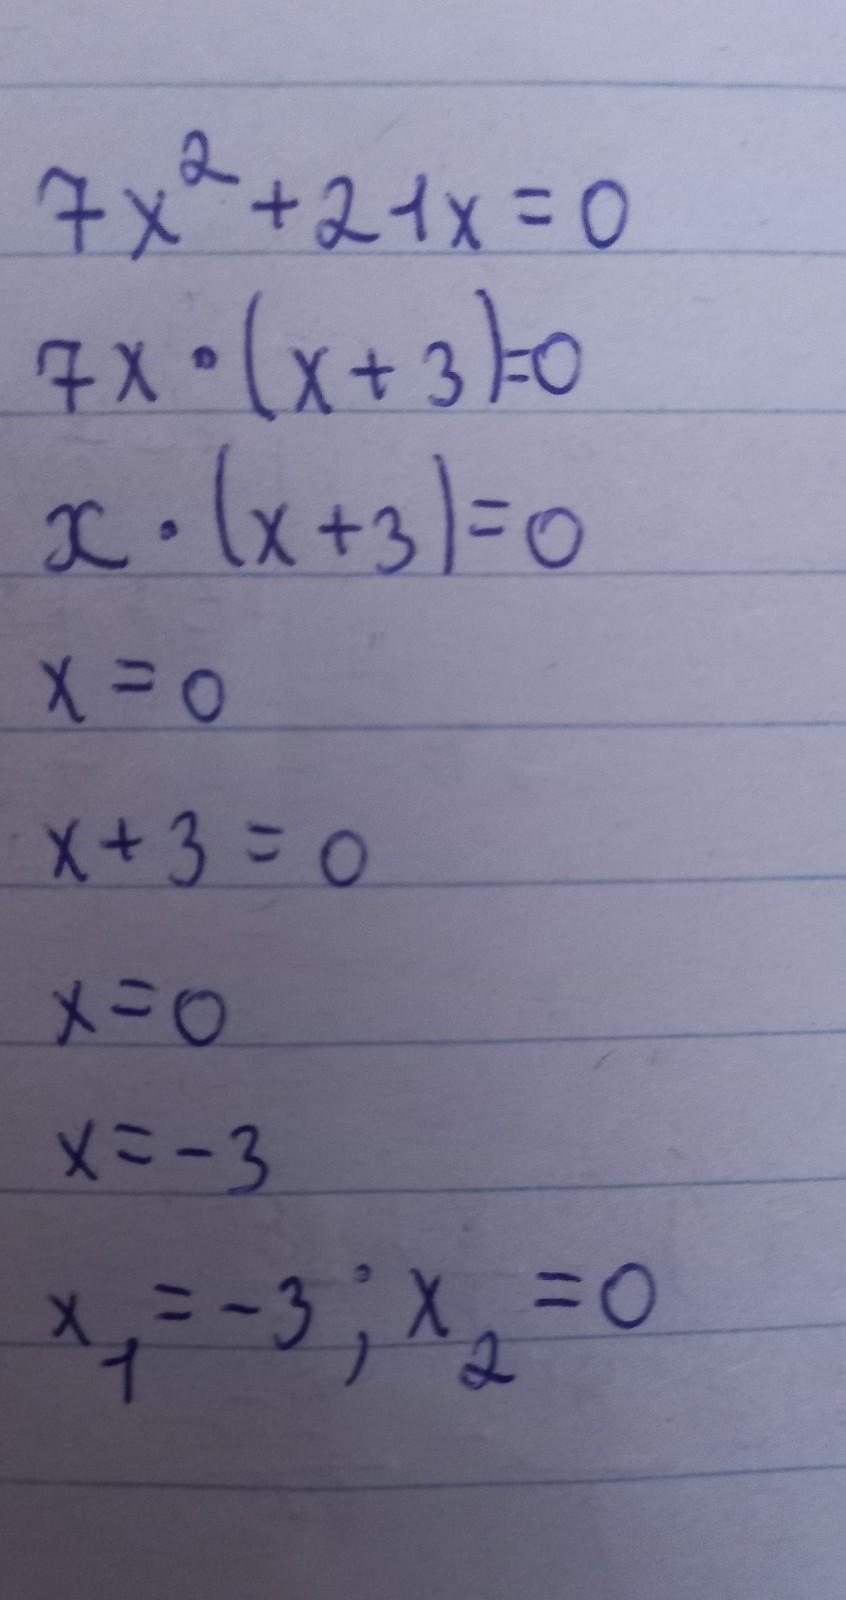 7x² + 21x = 0
7x · (x + 3) = 0
x · (x + 3) = 0
x = 0
x + 3 = 0
x = 0
x = -3
x₁ = -3 ; x₂ = 0